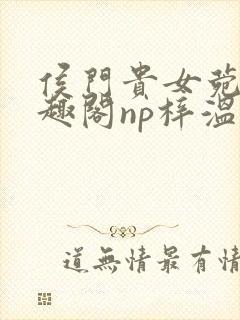 侯門貴女菀
趣閣np梓溫
道無情最有情